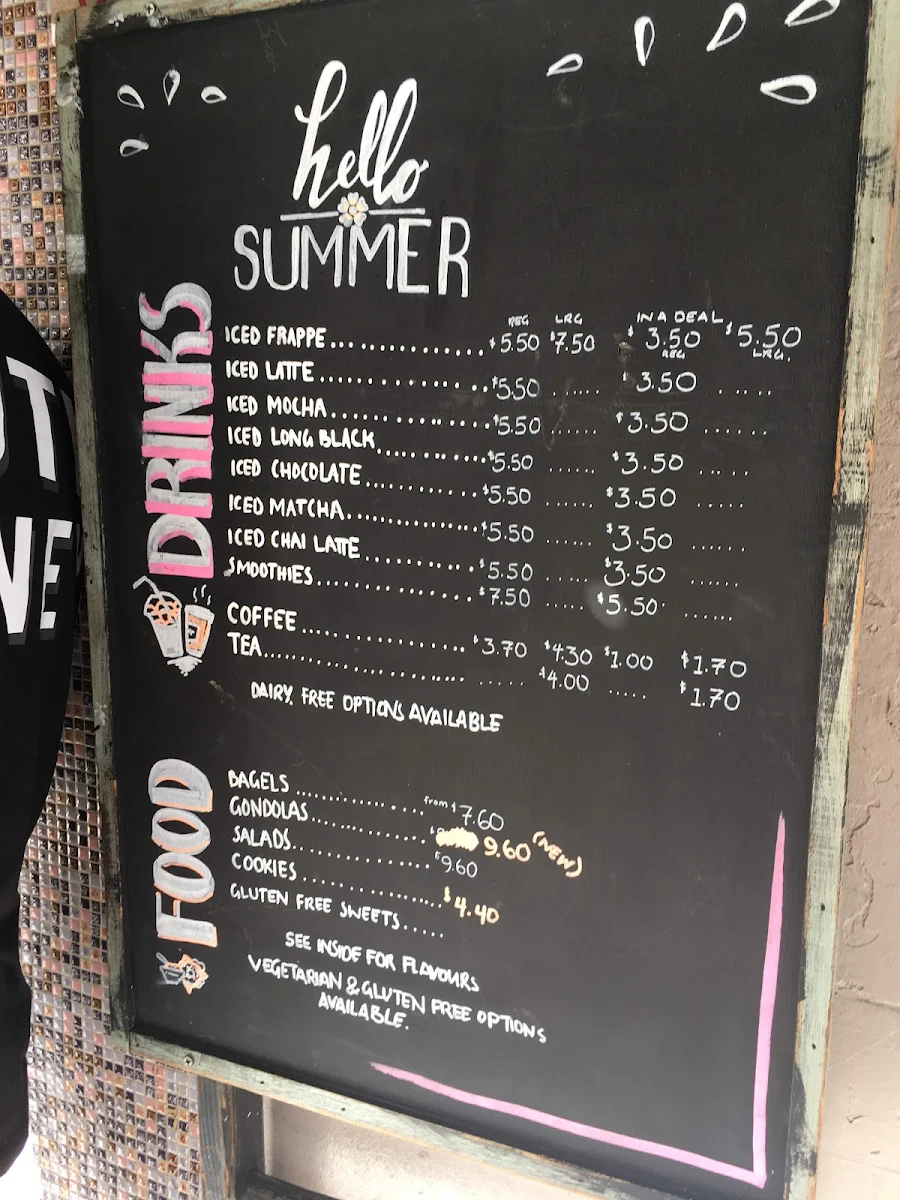 hello
SUMMER
DRINKS
REG LRG IN A DEAL
ICED FRAPPE................$5.50 $7.50 $3.50 REG $5.50 LRG.
ICED LATTE................$5.50 ...... $3.50 .....
ICED MOCHA................$5.50 ...... $3.50 ......
ICED LONG BLACK............$5.50 ...... $3.50 .....
ICED CHOCOLATE............$5.50 ...... $3.50 .....
ICED MATCHA................$5.50 ...... $3.50 ......
ICED CHAI LATTE............$5.50 ...... $3.50 ......
SMOOTHIES................$7.50 ..... $5.50 ......
COFFEE................$3.70 $4.30 $1.00 $1.70
TEA........................... $4.00 ..... $1.70
DAIRY FREE OPTIONS AVAILABLE
FOOD
BAGELS ............. from $7.60
GONDOLAS............. 9.60 (NEW)
SALADS................$9.60
COOKIES................$4.40
GLUTEN FREE SWEETS.....
SEE INSIDE FOR FLAVOURS
VEGETARIAN & GLUTEN FREE OPTIONS
AVAILABLE.